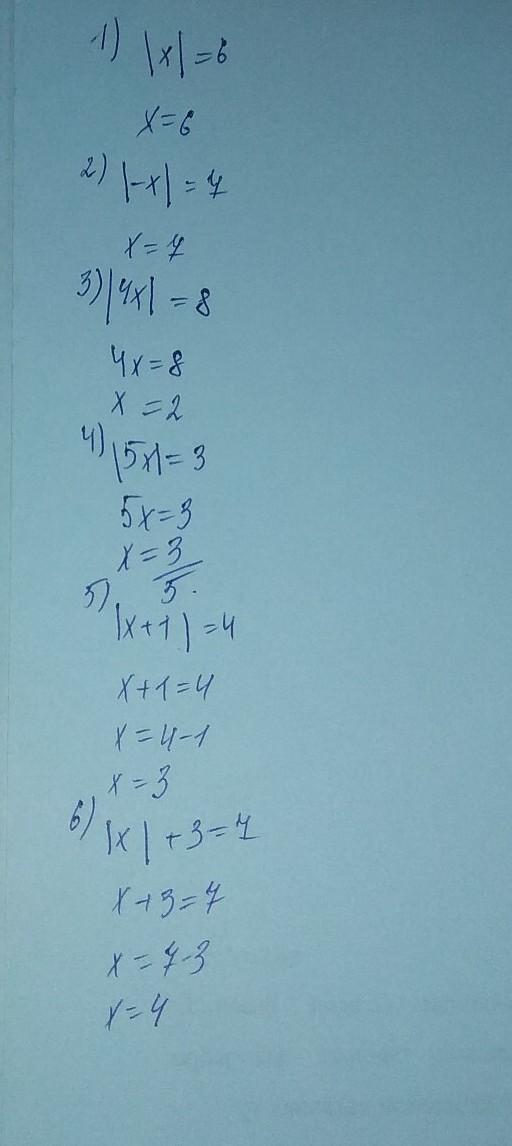 1) |x| = 6
x = 6
2) |-x| = 7
x = 7
3) |4x| = 8
4x = 8
x = 2
4) |5x| = 3
5x = 3
x = 3/5.
5) |x+1| = 4
x+1 = 4
x = 4-1
x = 3
6) |x| + 3 = 7
x + 3 = 7
x = 7-3
x = 4